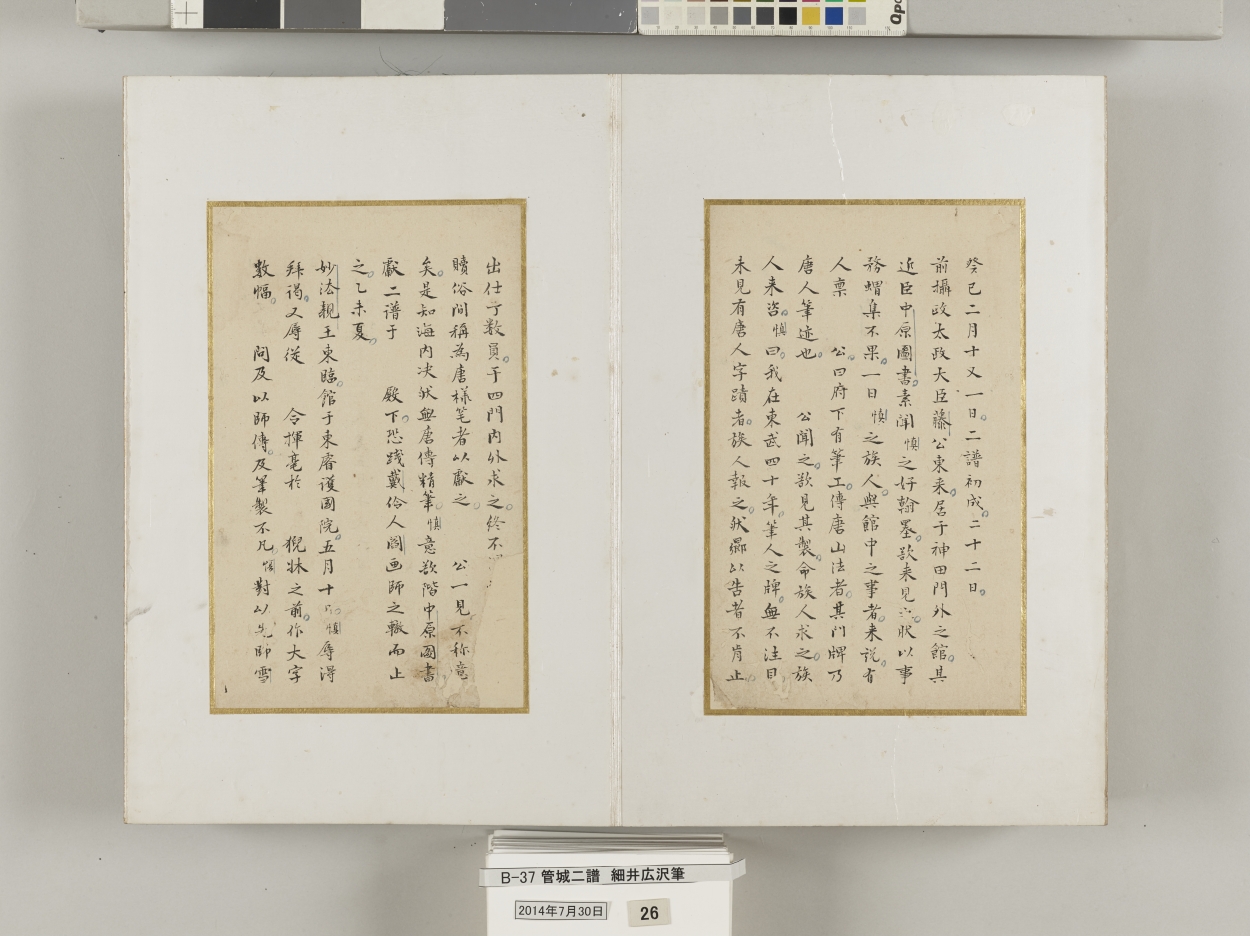 癸巳二月十又一日二譜初成二十二日
前攝政太政大臣藤公東来居于神田門外之館其
近臣中原圖書素聞慎之好翰墨欲来見之狀以事
務蝟集不果一日慎之族人與館中之事者来説有
人稟　公曰府下有筆工傳唐山法者其門牌乃
唐人筆迹也　公聞之欲見其製命族人求之族
人来咨慎曰我在東武四十年筆人之牌無不注目
未見有唐人字蹟者族人報之狀鄙以告者不肯止
出仕于数員于四門内外求之終不
贖俗间稱為唐様笔者以獻之　公一見不称意
矣是知海内决狀無唐傳精筆慎意欲階中原圖書
獻二谱于　殿下恐踐戴伶人阎画師之轍而止
之乙未夏
妙法親王東臨館于東睿護国院五月十　慎辱得
拜谒又辱從　令揮毫於　猊牀之前作大字
数幅　问及以師傳及筆製不凡慎對以先師雪
B-37 管城二譜 細井広沢筆
2014年7月30日
26